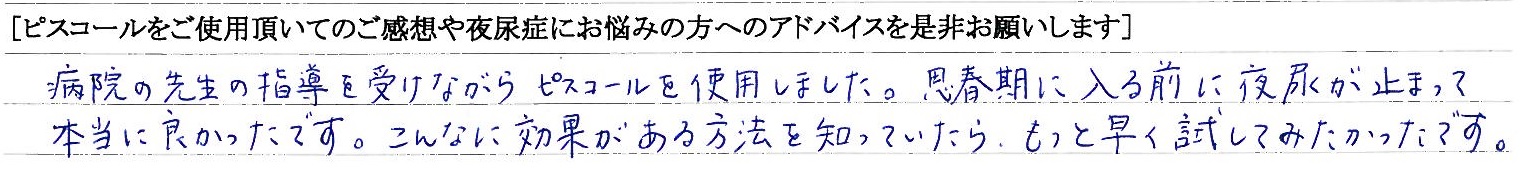 [ピスコールをご使用頂いてのご感想や夜尿症にお悩みの方へのアドバイスを是非お願いします]
病院の先生の指導を受けながらピスコールを使用しました。思春期に入る前に夜尿が止まって
本当に良かったです。こんなに効果がある方法を知っていたら、もっと早く試してみたかったです。